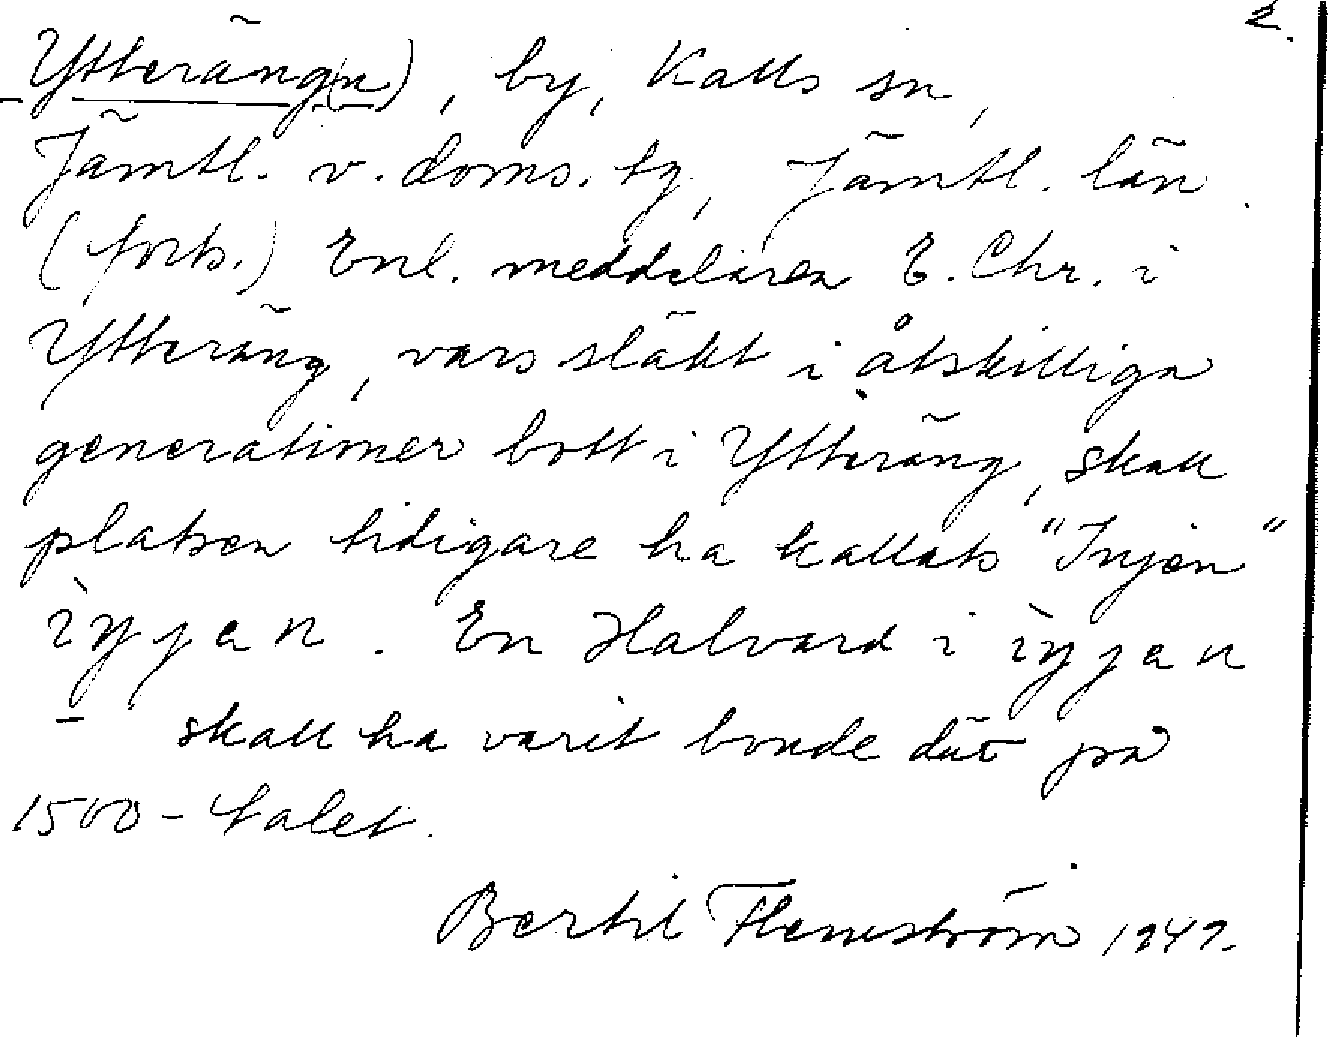 2.
Ytteräng(n), by, Kalls sn,
Jämtl. v. doms. tg, Jämtl. län.
(forts.) Enl. meddelaren E. Chr. i
Ytteräng, vars släkt i åtskilliga
generationer bott i Ytteräng, skall
platsen tidigare ha kallats "Injen"
En Halvard i
skall ha varit bonde där på
1500-talet.
Bertil Flemström